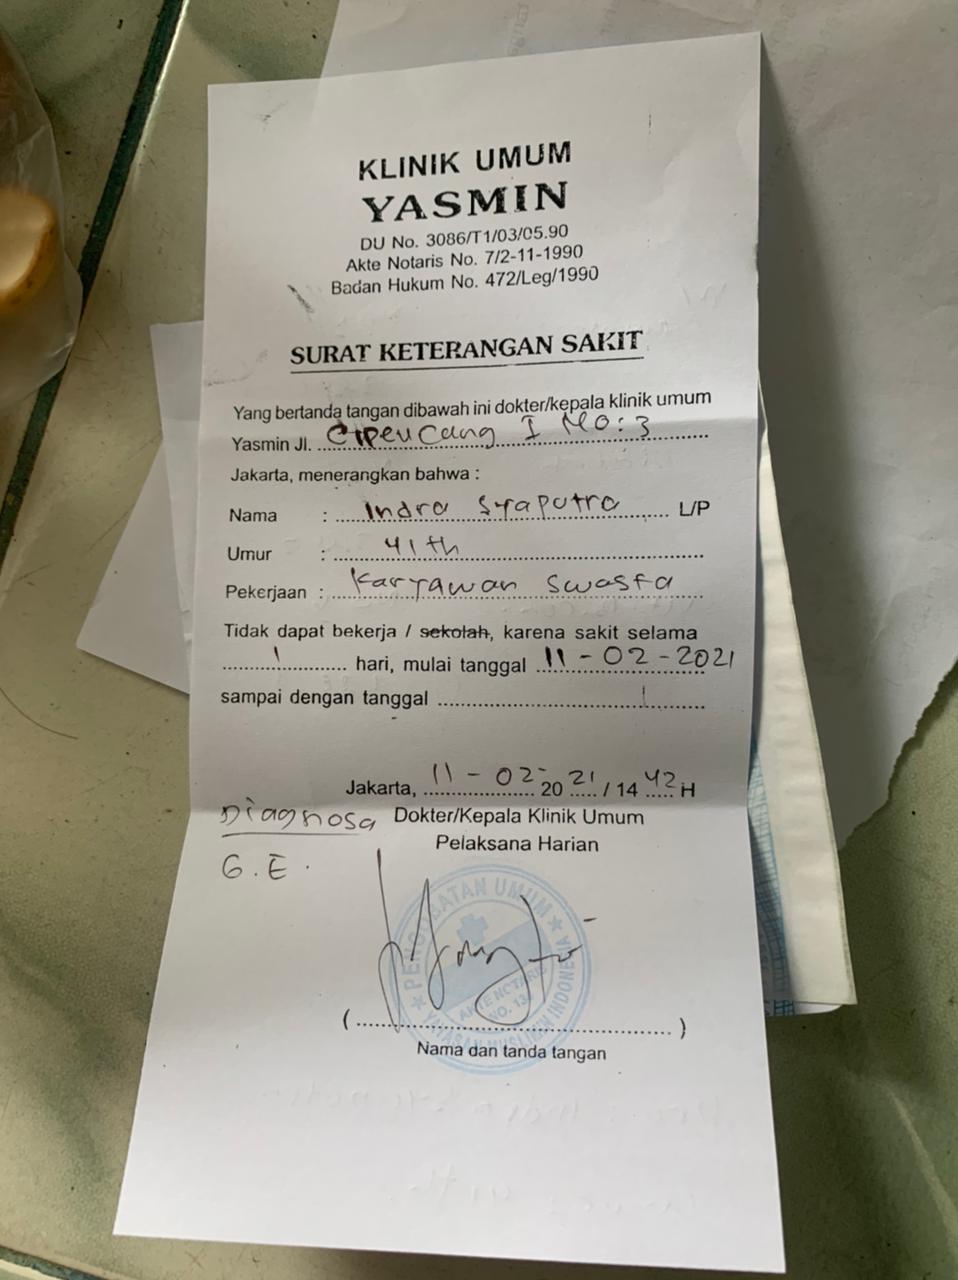 KLINIK UMUM
YASMIN
DU No. 3086/T1/03/05.90
Akte Notaris No. 7/2-11-1990
Badan Hukum No. 472/Leg/1990
SURAT KETERANGAN SAKIT
Yang bertanda tangan dibawah ini dokter/kepala klinik umum
Yasmin Jl. Cipeucang I No: 3
Jakarta, menerangkan bahwa :
Nama : Indra Syaputra L/P
Umur : 41 th
Pekerjaan : Karyawan Swasta
Tidak dapat bekerja / sekolah, karena sakit selama
1 hari, mulai tanggal 11 - 02 - 2021
sampai dengan tanggal
Jakarta, 11 - 02 - 2021 / 1442 H
Diagnosa Dokter/Kepala Klinik Umum
Pelaksana Harian
G.E.
PENGOBATAN UMUM
AKTE NOTARIS
YAYASAN MUSLIMIN INDONESIA
(....................)
Nama dan tanda tangan